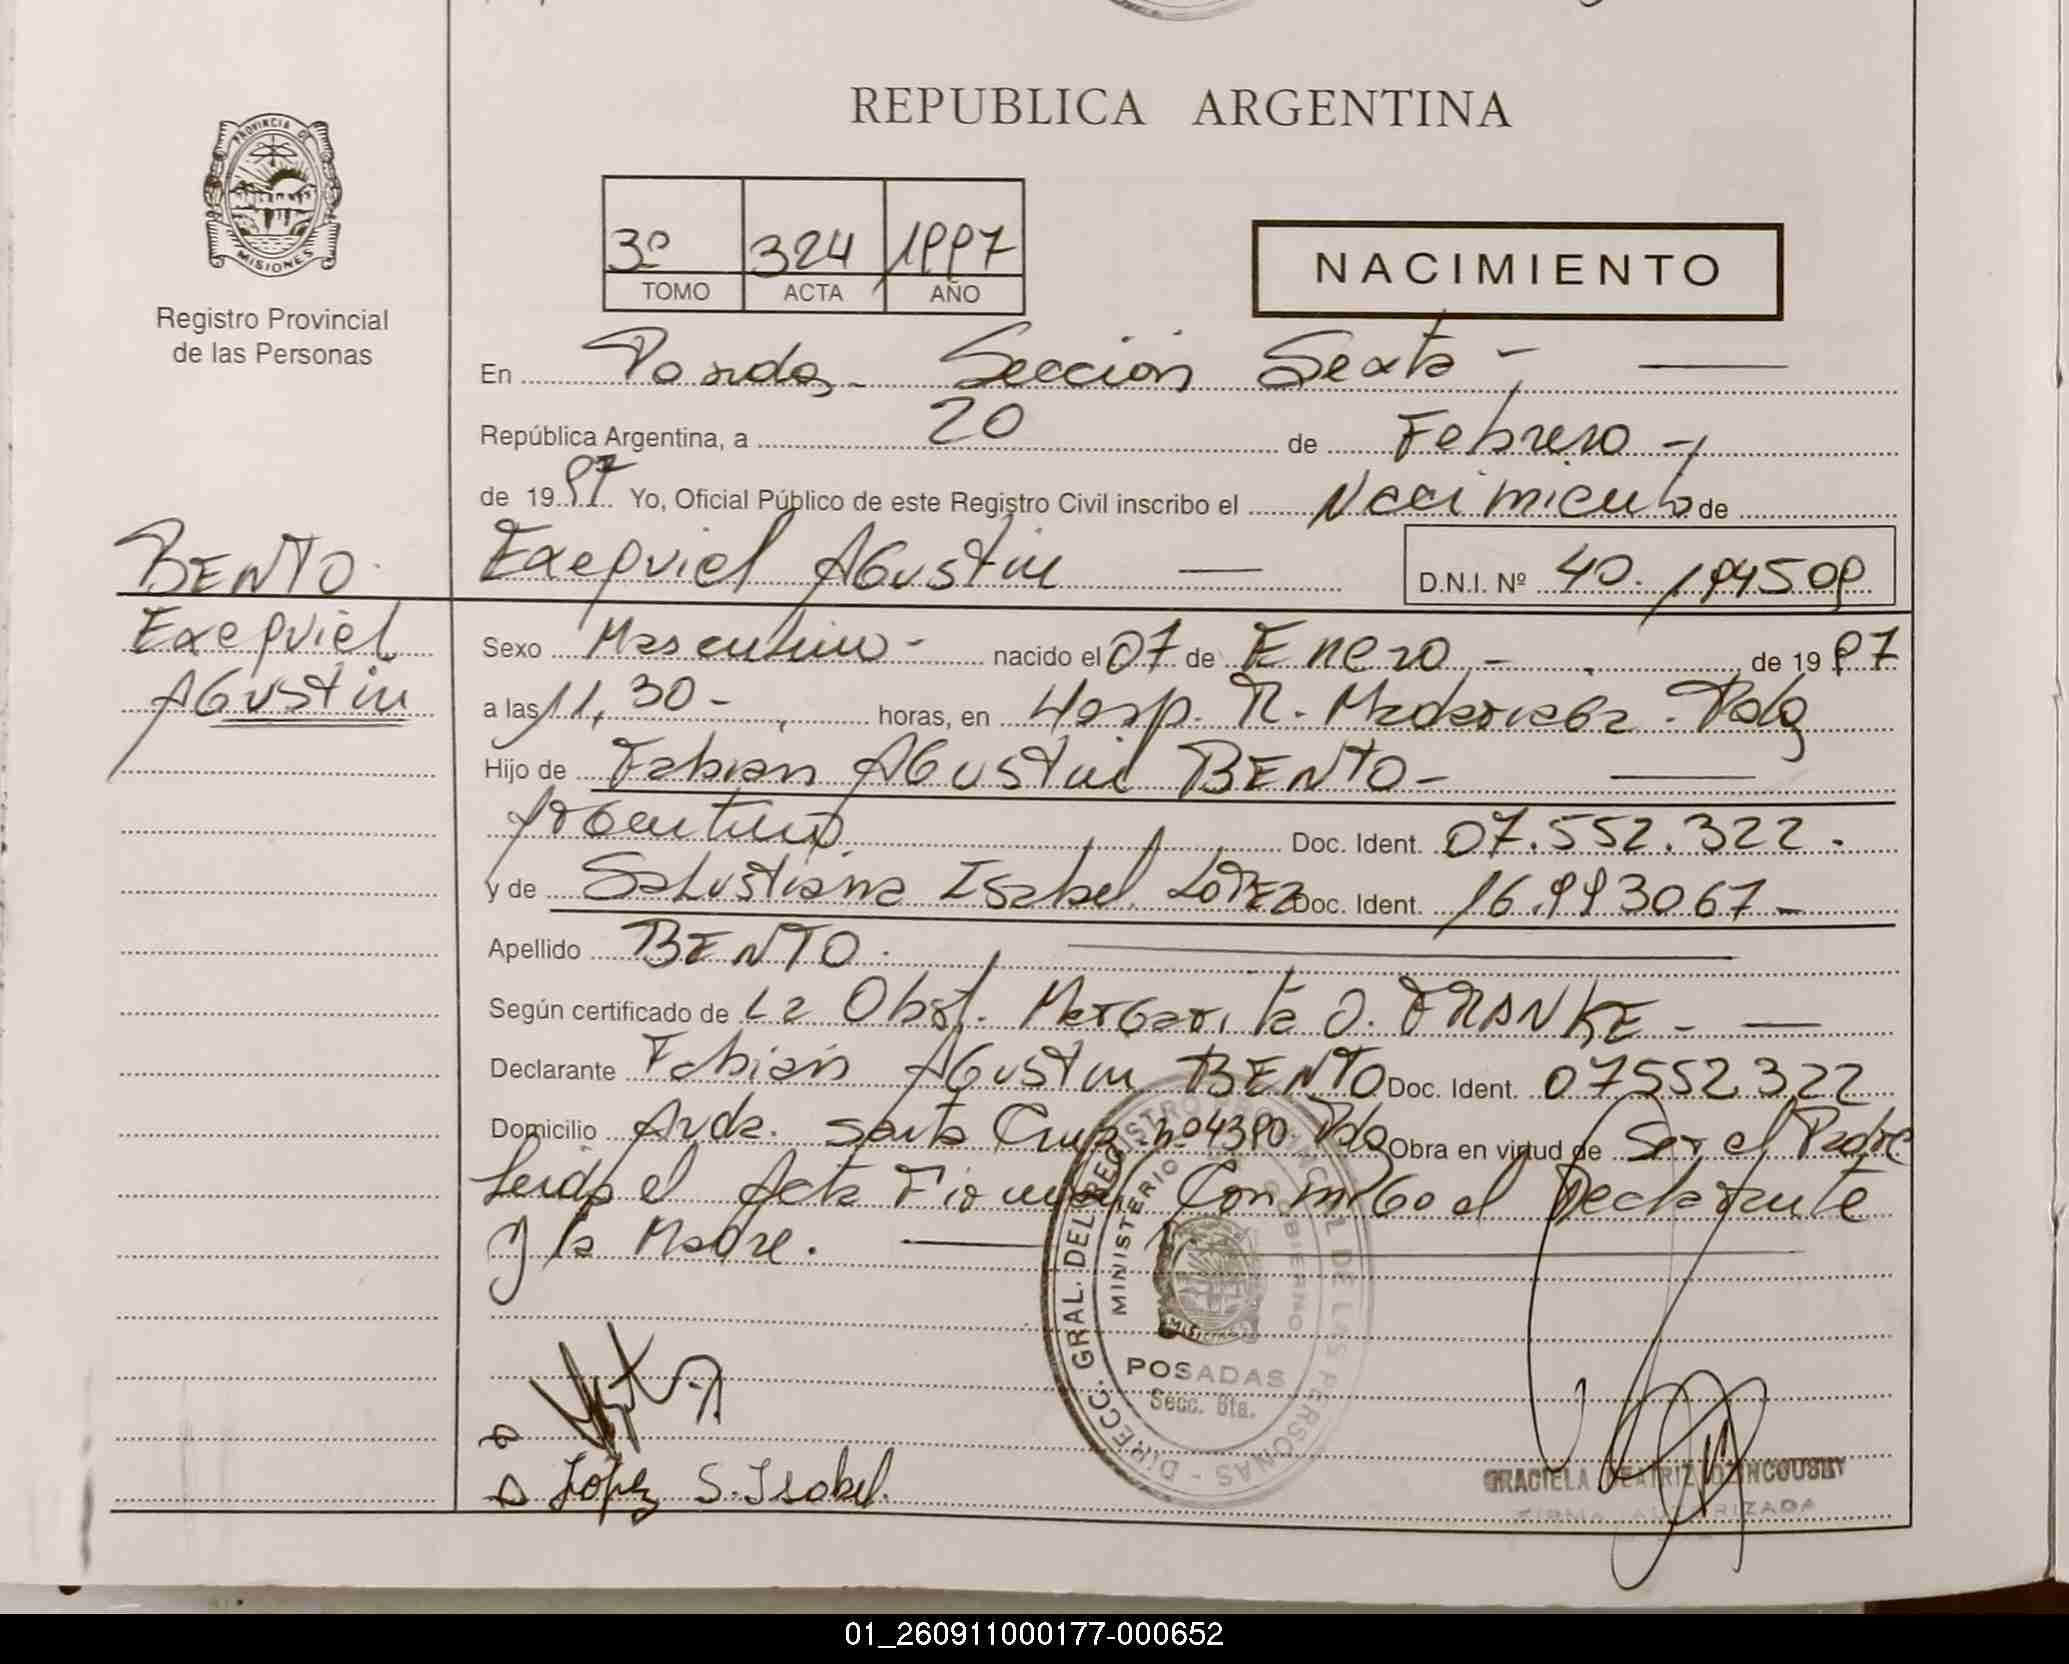 REPUBLICA ARGENTINA
PROVINCIA DE
MISIONES
Registro Provincial
de las Personas
3º 324 1997
TOMO ACTA AÑO
NACIMIENTO
En Posadas - Sección Sexta -
República Argentina, a 20 de Febrero -
de 1997 Yo, Oficial Público de este Registro Civil inscribo el Nacimiento de
BENTO
Exequiel
Agustin
Exequiel Agustin D.N.I. Nº 40.194509
Sexo Masculino - nacido el 07 de Enero - de 1997
a las 11,30 - horas, en Hosp. R. Madariaga. Pdas
Hijo de Fabian Agustin BENTO -
Argentino Doc. Ident. 07.552.322.
y de Salustiana Isabel LOPEZ Doc. Ident. 16.993067 -
Apellido BENTO.
Según certificado de La Obst. Margarita O. FRANKE -
Declarante Fabián Agustin BENTO Doc. Ident. 07552322
Domicilio Avda. Santa Cruz nº 4390 Pdas Obra en virtud de Ser el Padre
Leida el Acta Firman Conmigo el Declarante
y la Madre.
DIRECC. GRAL. DEL REGISTRO PROVINCIAL DE LAS PERSONAS
MINISTERIO GOBIERNO
MISIONES
POSADAS
Secc. 6ta.
López S. Isabel.
GRACIELA BEATRIZ
FIRMA AUTORIZADA
01_260911000177-000652